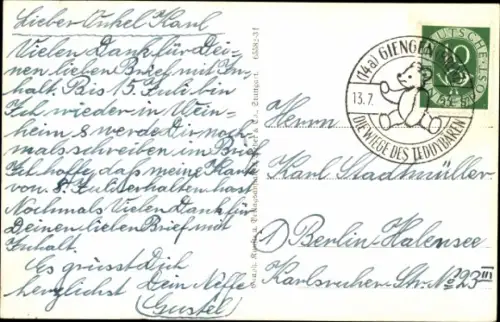 Lieber Onkel Karl
Vielen Dank für Dei-
nen lieben Brief mit In-
halt. Bis 15. Juli bin
Ich wieder in Wein-
heim & werde Dir noch-
mals schreiben im Brief
Ich hoffe, daß meine Karte
von 8. Juli erhalten hast
Nochmals Vielen Dank für
Deinen lieben Brief mit
Inhalt.
Es grüsst Dich
herzlichst Dein Neffe
(Gustel)
Stuttgart. 6558/51
(14a) GIENGEN
13.7.
DIE WIEGE DES TEDDYBÄREN
DEUTSCHE POST
10
Herrn
Karl Stadtmüller
1) Berlin Halensee
Karlsruher-Str. No 23 III